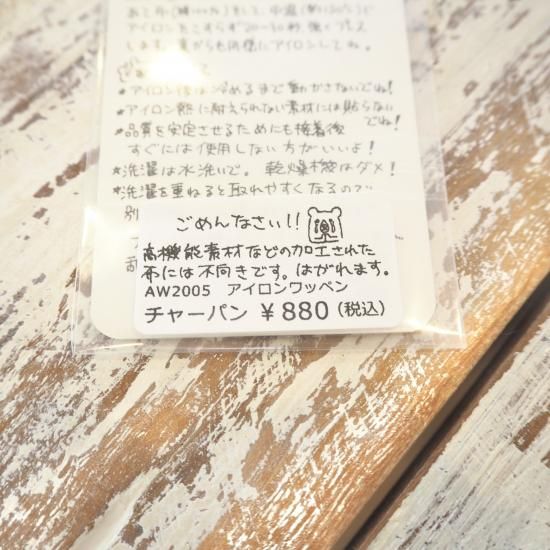 あて布(綿100%)をして、中温(約150℃)で
アイロンをこすらず20~30秒、強くプレス
します。裏からも同様にアイロンしてね。
★アイロン後は冷めるまで動かさないでね!
★アイロン熱に耐えられない素材には貼らない
でね!
★品質を安定させるためにも接着後
すぐには使用しない方がいいよ!
★洗濯は水洗いで。乾燥機はダメ!
★洗濯を重ねると取れやすくなるので
別
ごめんなさい!!
高機能素材などの加工された
布には不向きです。はがれます。
AW2005 アイロンワッペン
チャーパン ¥880(税込)